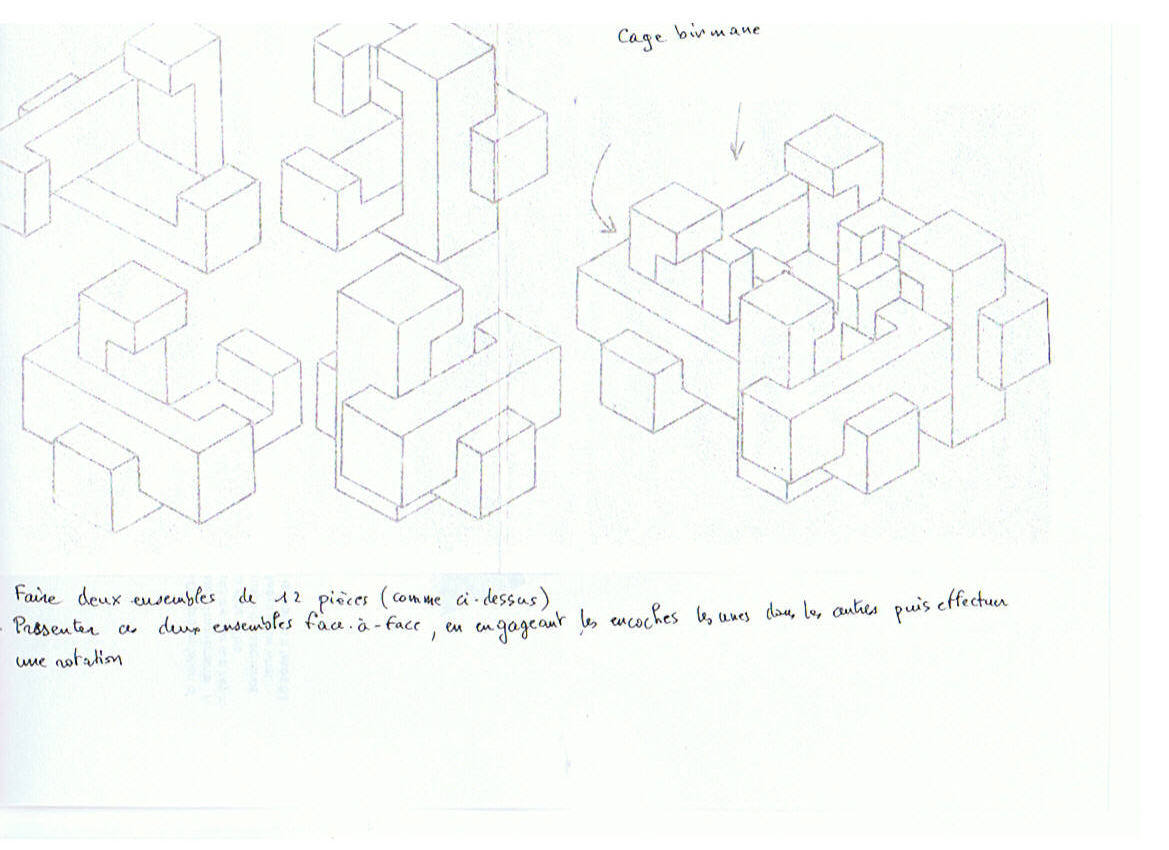 Cage birmane
Faire deux ensembles de 12 pièces (comme ci-dessus)
Présenter ces deux ensembles face-à-face, en engageant les encoches les unes dans les autres puis effectuer
une rotation